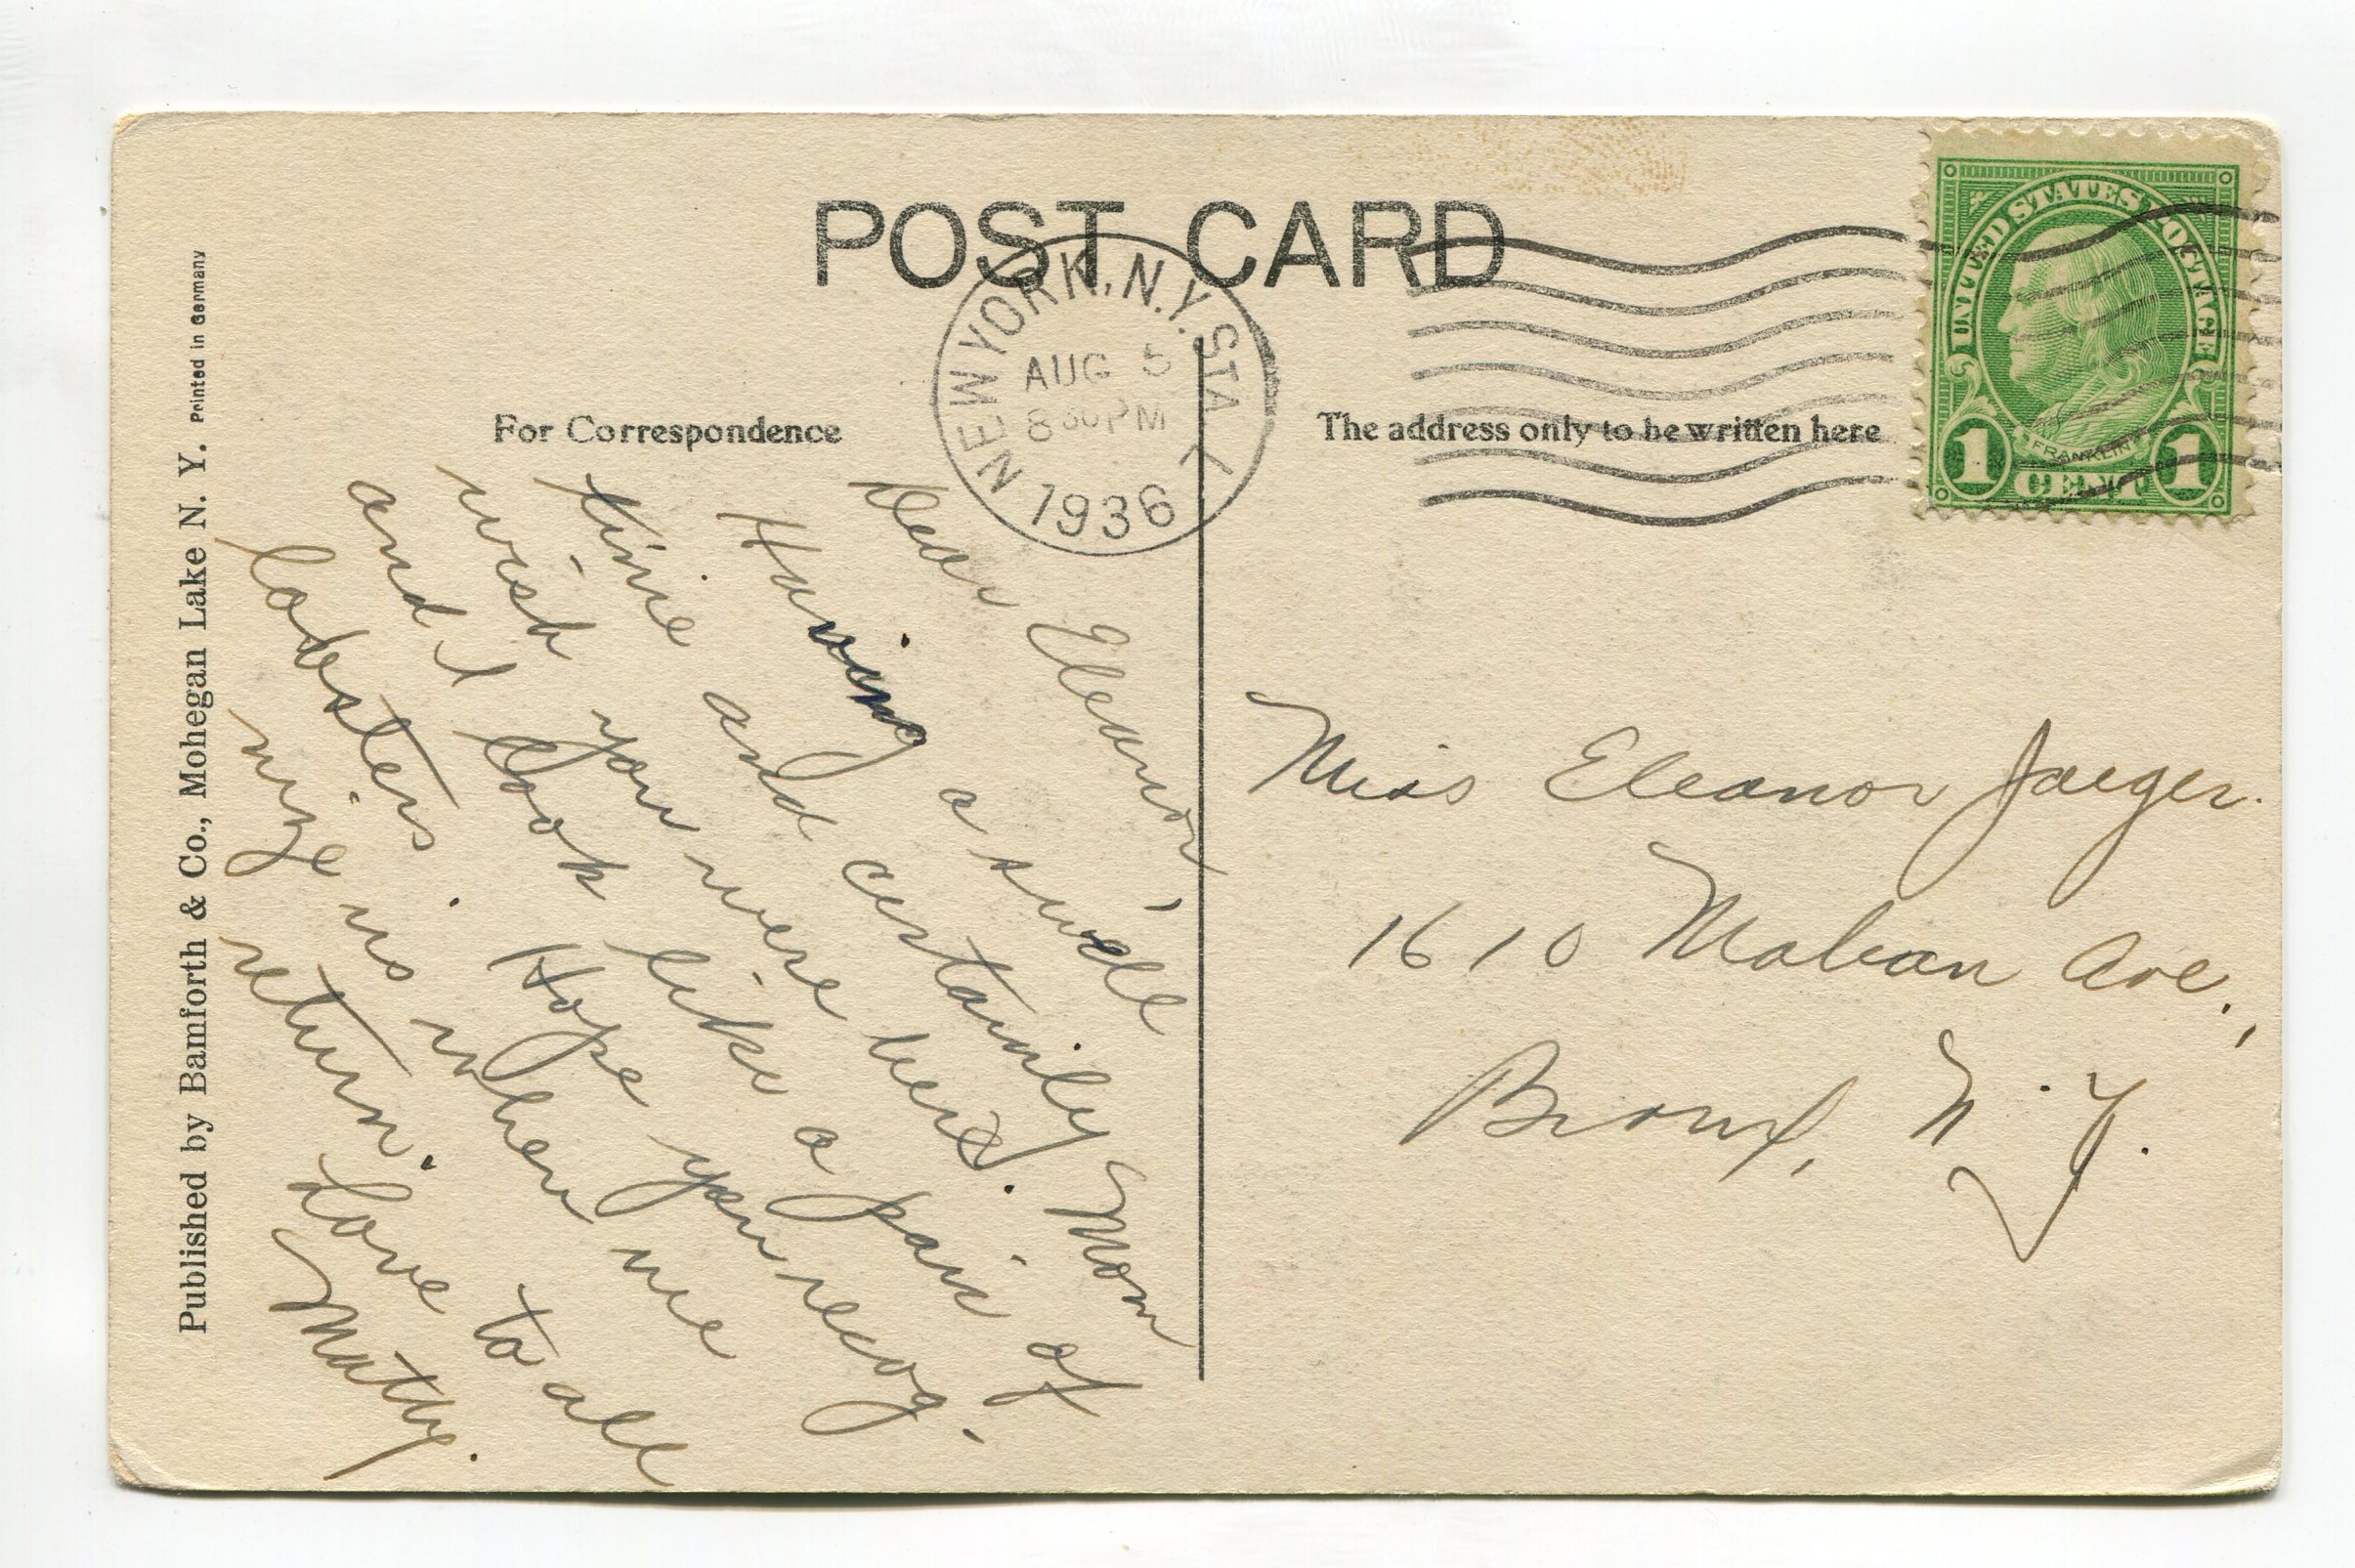 POST CARD
NEW YORK, N.Y. STA
AUG 5
8 30 PM
1936
UNITED STATES POSTAGE
FRANKLIN
1 CENT 1
For Correspondence
The address only to be written here
Dear Eleanor,
Having a swell
time and certainly
wish you were here. Mom
and I look like a pair of
lobsters. Hope you recog-
nize us when we
return.
Love to all
Matty.
Miss Eleanor Jaeger.
1610 Mahan Ave.,
Bronx, N.Y.
Published by Bamforth & Co., Mohegan Lake N. Y. Printed in Germany